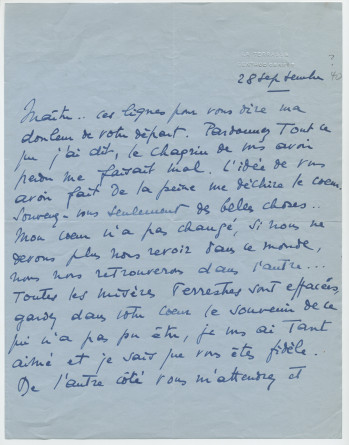 28 septembre
?
40
Maître.. ces lignes pour vous dire ma
douleur de votre départ. Pardonnez Tout ce
que j'ai dit, le chagrin de vous avoir
perdu me faisait mal. L'idée de vous
avoir fait de la peine me déchire le coeur.
Souvenez-vous seulement des belles choses..
Mon coeur n'a pas changé, si nous ne
devons plus nous revoir dans ce monde,
nous nous retrouverons dans l'autre...
Toutes les misères Terrestres sont effacées,
gardez dans votre coeur le souvenir de ce
qui n'a pas pu être, je vous ai Tant
aimé et je sais que vous êtes fidèle..
De l'autre côté vous m'attendrez et